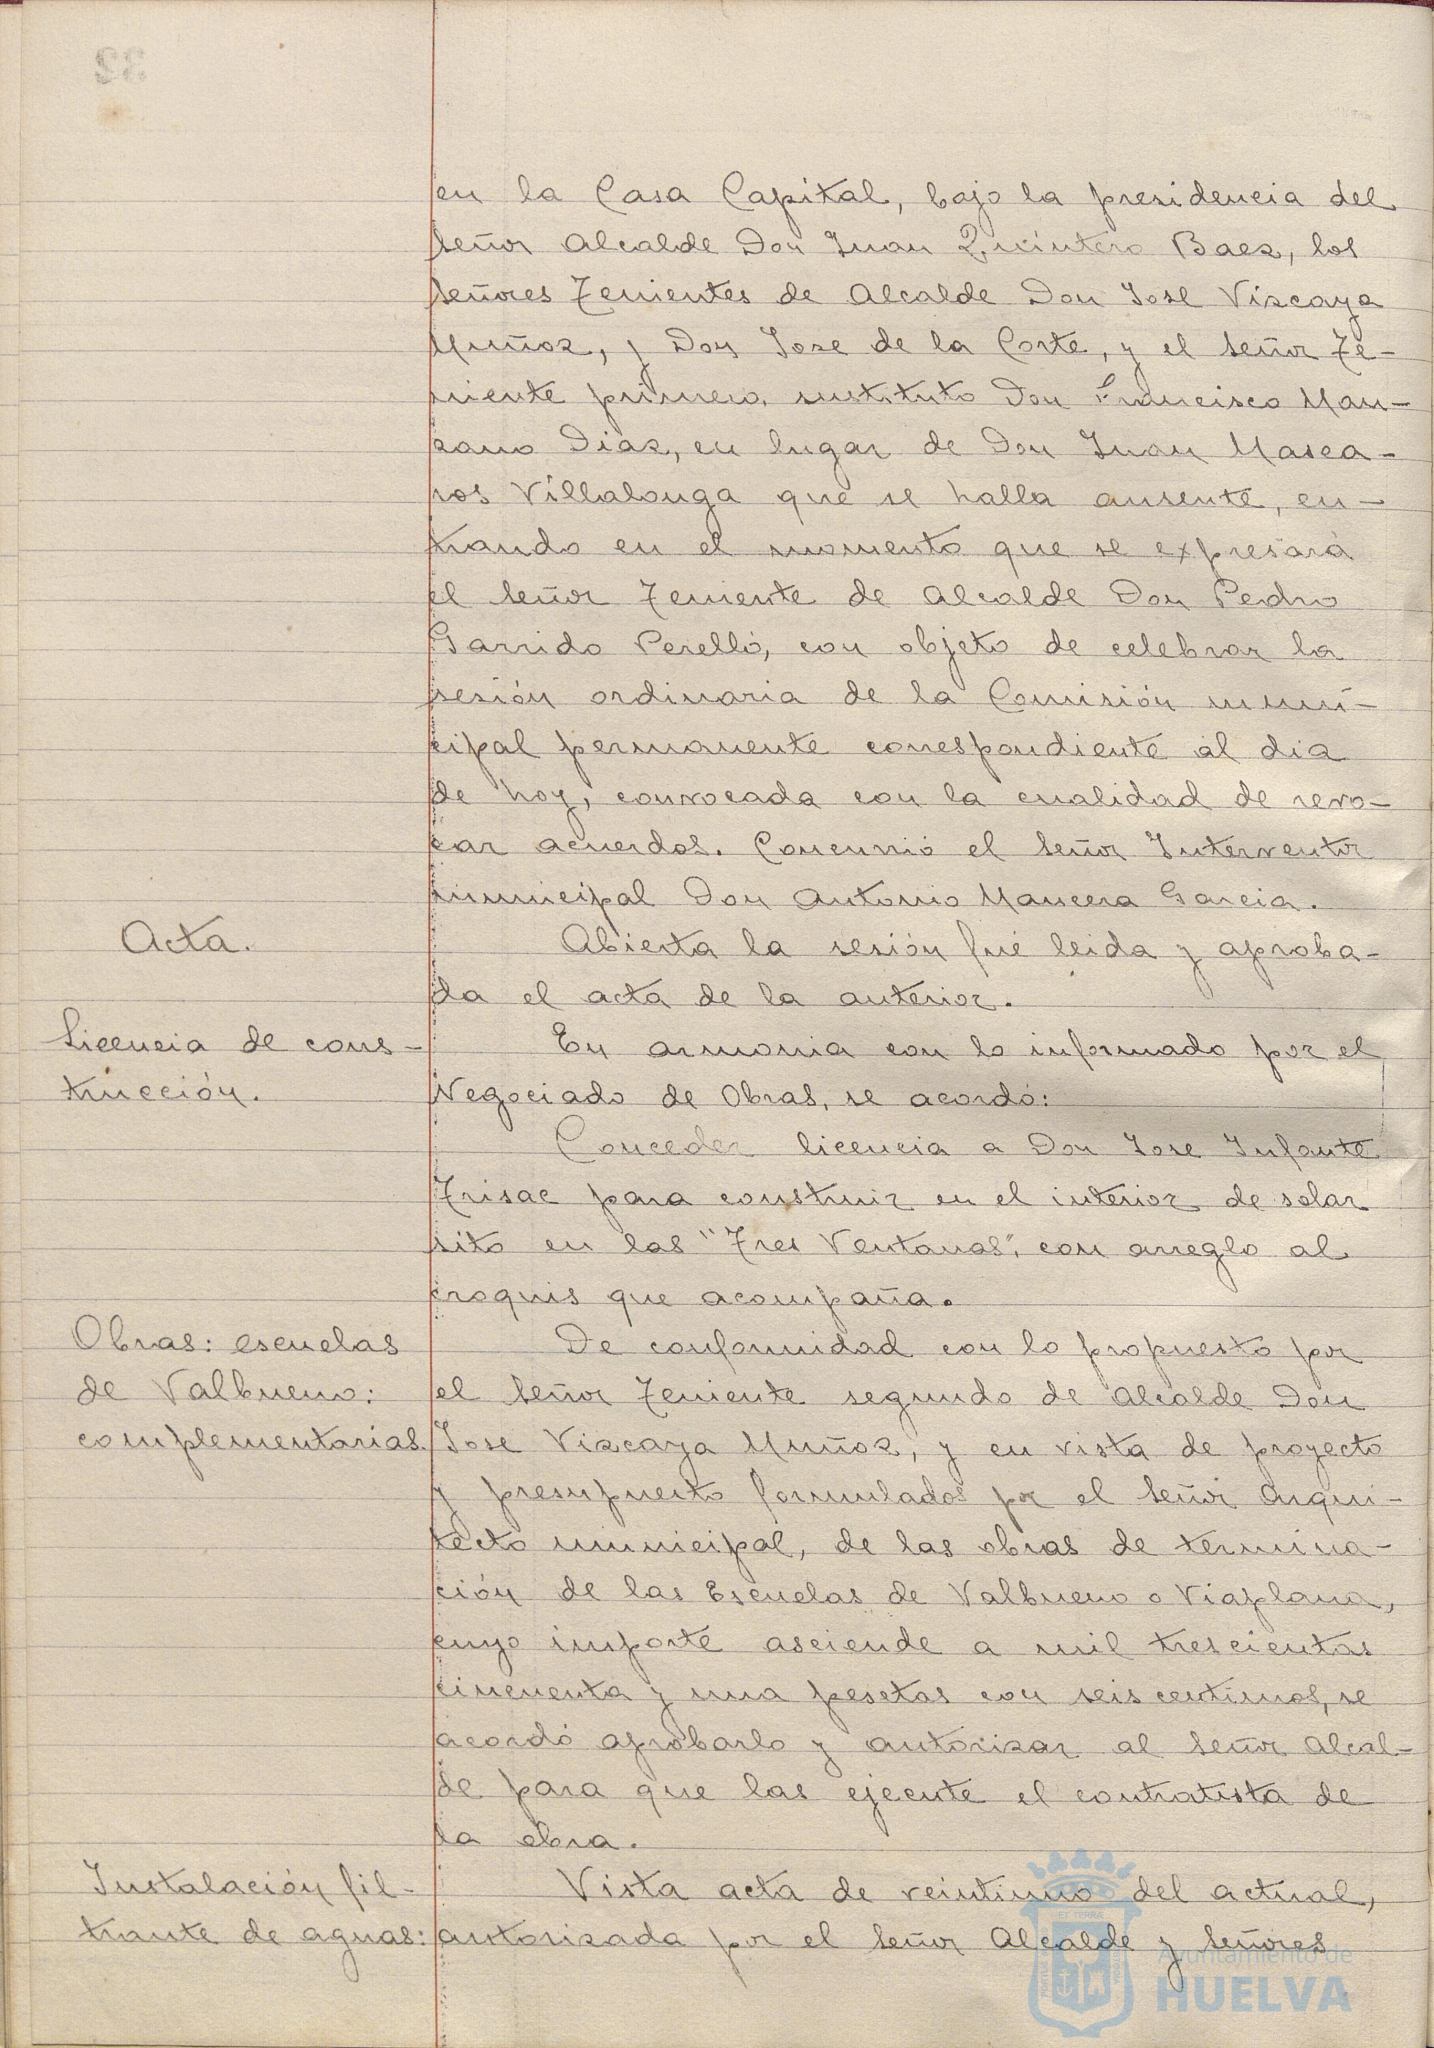 en la Casa Capital, bajo la presidencia del
señor Alcalde Don Juan Quintero Baez, los
señores Tenientes de Alcalde Don José Vizcaya
Muñoz, y Don Jose de la Corte, y el señor Te-
niente primero, sustituto Don Francisco Man-
zano Diaz, en lugar de Don Juan Masca-
ros Villalonga que se halla ausente, en-
trando en el momento que se expresará
el señor Teniente de Alcalde Don Pedro
Garrido Perelló, con objeto de celebrar la
sesión ordinaria de la Comisión muni-
cipal permanente correspondiente al dia
de hoy, convocada con la cualidad de revo-
car acuerdos. Concurrió el señor Interventor
municipal Don Antonio Mancera Garcia.
Acta.
Abierta la sesión fué leida y aproba-
da el acta de la anterior.
Licencia de cons-
trucción.
En armonia con lo informado por el
Negociado de Obras, se acordó:
Conceder licencia a Don Jose Infante
Trisac para construir en el interior de solar
sito en las "Tres Ventanas", con arreglo al
croquis que acompaña.
Obras: escuelas
de Valbueno:
complementarias.
De conformidad con lo propuesto por
el señor Teniente segundo de Alcalde Don
Jose Vizcaya Muñoz, y en vista de proyecto
y presupuesto formulados por el señor Arqui-
tecto municipal, de las obras de termina-
ción de las Escuelas de Valbueno o Viaplana,
cuyo importe asciende a mil trescientas
cincuenta y una pesetas con seis centimos, se
acordó aprobarlo y autorizar al señor Alcal-
de para que las ejecute el contratista de
la obra.
Instalación fil-
trante de aguas:
Vista acta de veintiuno del actual,
autorizada por el señor Alcalde y señores
Ayuntamiento de
HUELVA